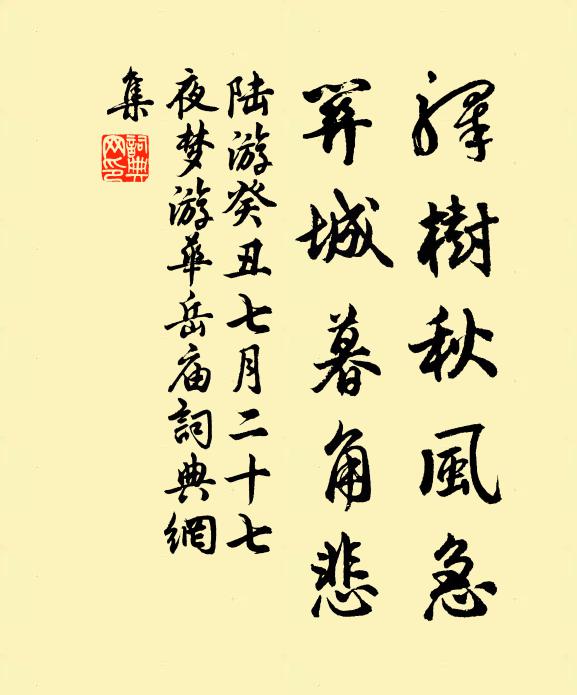 驛樹秋風急
關城暮角悲
陆游癸丑七月二十七
夜梦游華岳庙詞典網
集
詞典
网印